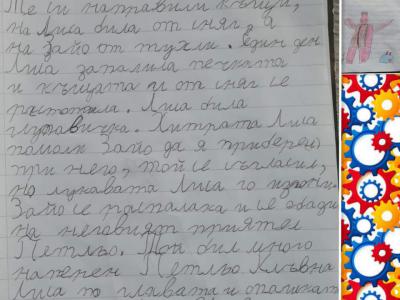 Те си направили къщи,
на Лиса била от сняг, а
на Зайо от тухли. Един ден
Лиса запалила печката
и къщата и от сняг се
разтопила. Лиса била
Хитрата Лиса
помоли Зайо да я прибере
при него, той се съгласил,
но лукавата Лиса го изгони.
Зайо се разплакал и се обади
на неговият приятел
Петльо. Той бил много
наперен Петльо. Клъвна
Лиса по главата и опашката